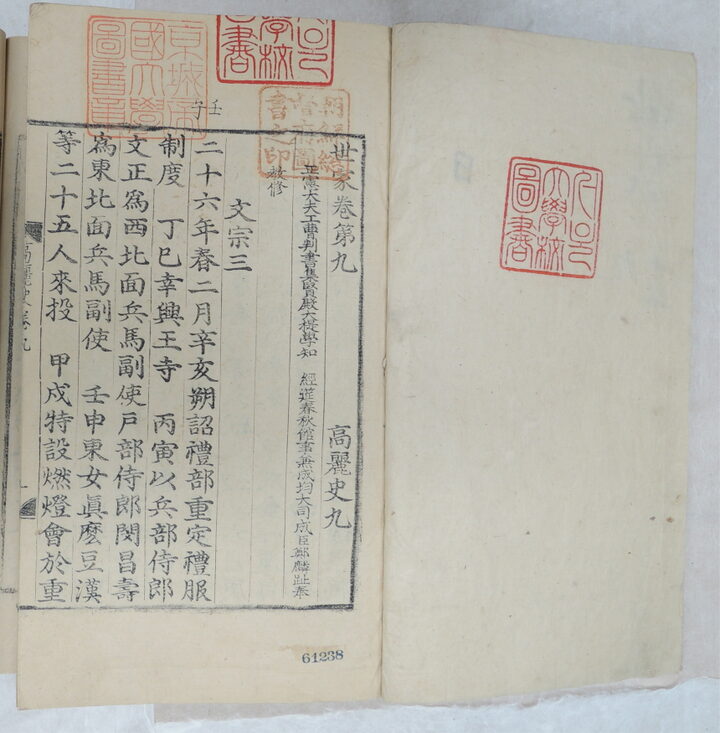 서울
大學校
圖書
學校
書
京城帝
國大學
圖書章
朝鮮總
督府圖
書之印
壬子
世家卷第九 高麗史九
正憲大夫工曹判書集賢殿大提學知 經筵春秋館事兼成均大司成臣鄭麟趾奉
敎修
文宗三
二十六年春二月辛亥朔詔禮部重定禮服
制度 丁巳幸興王寺 丙寅以兵部侍郎
文正爲西北面兵馬副使戶部侍郎閔昌壽
爲東北面兵馬副使 壬申東女眞麽豆漢
等二十五人來投 甲戌特設燃燈會於重
高麗史卷九
61238